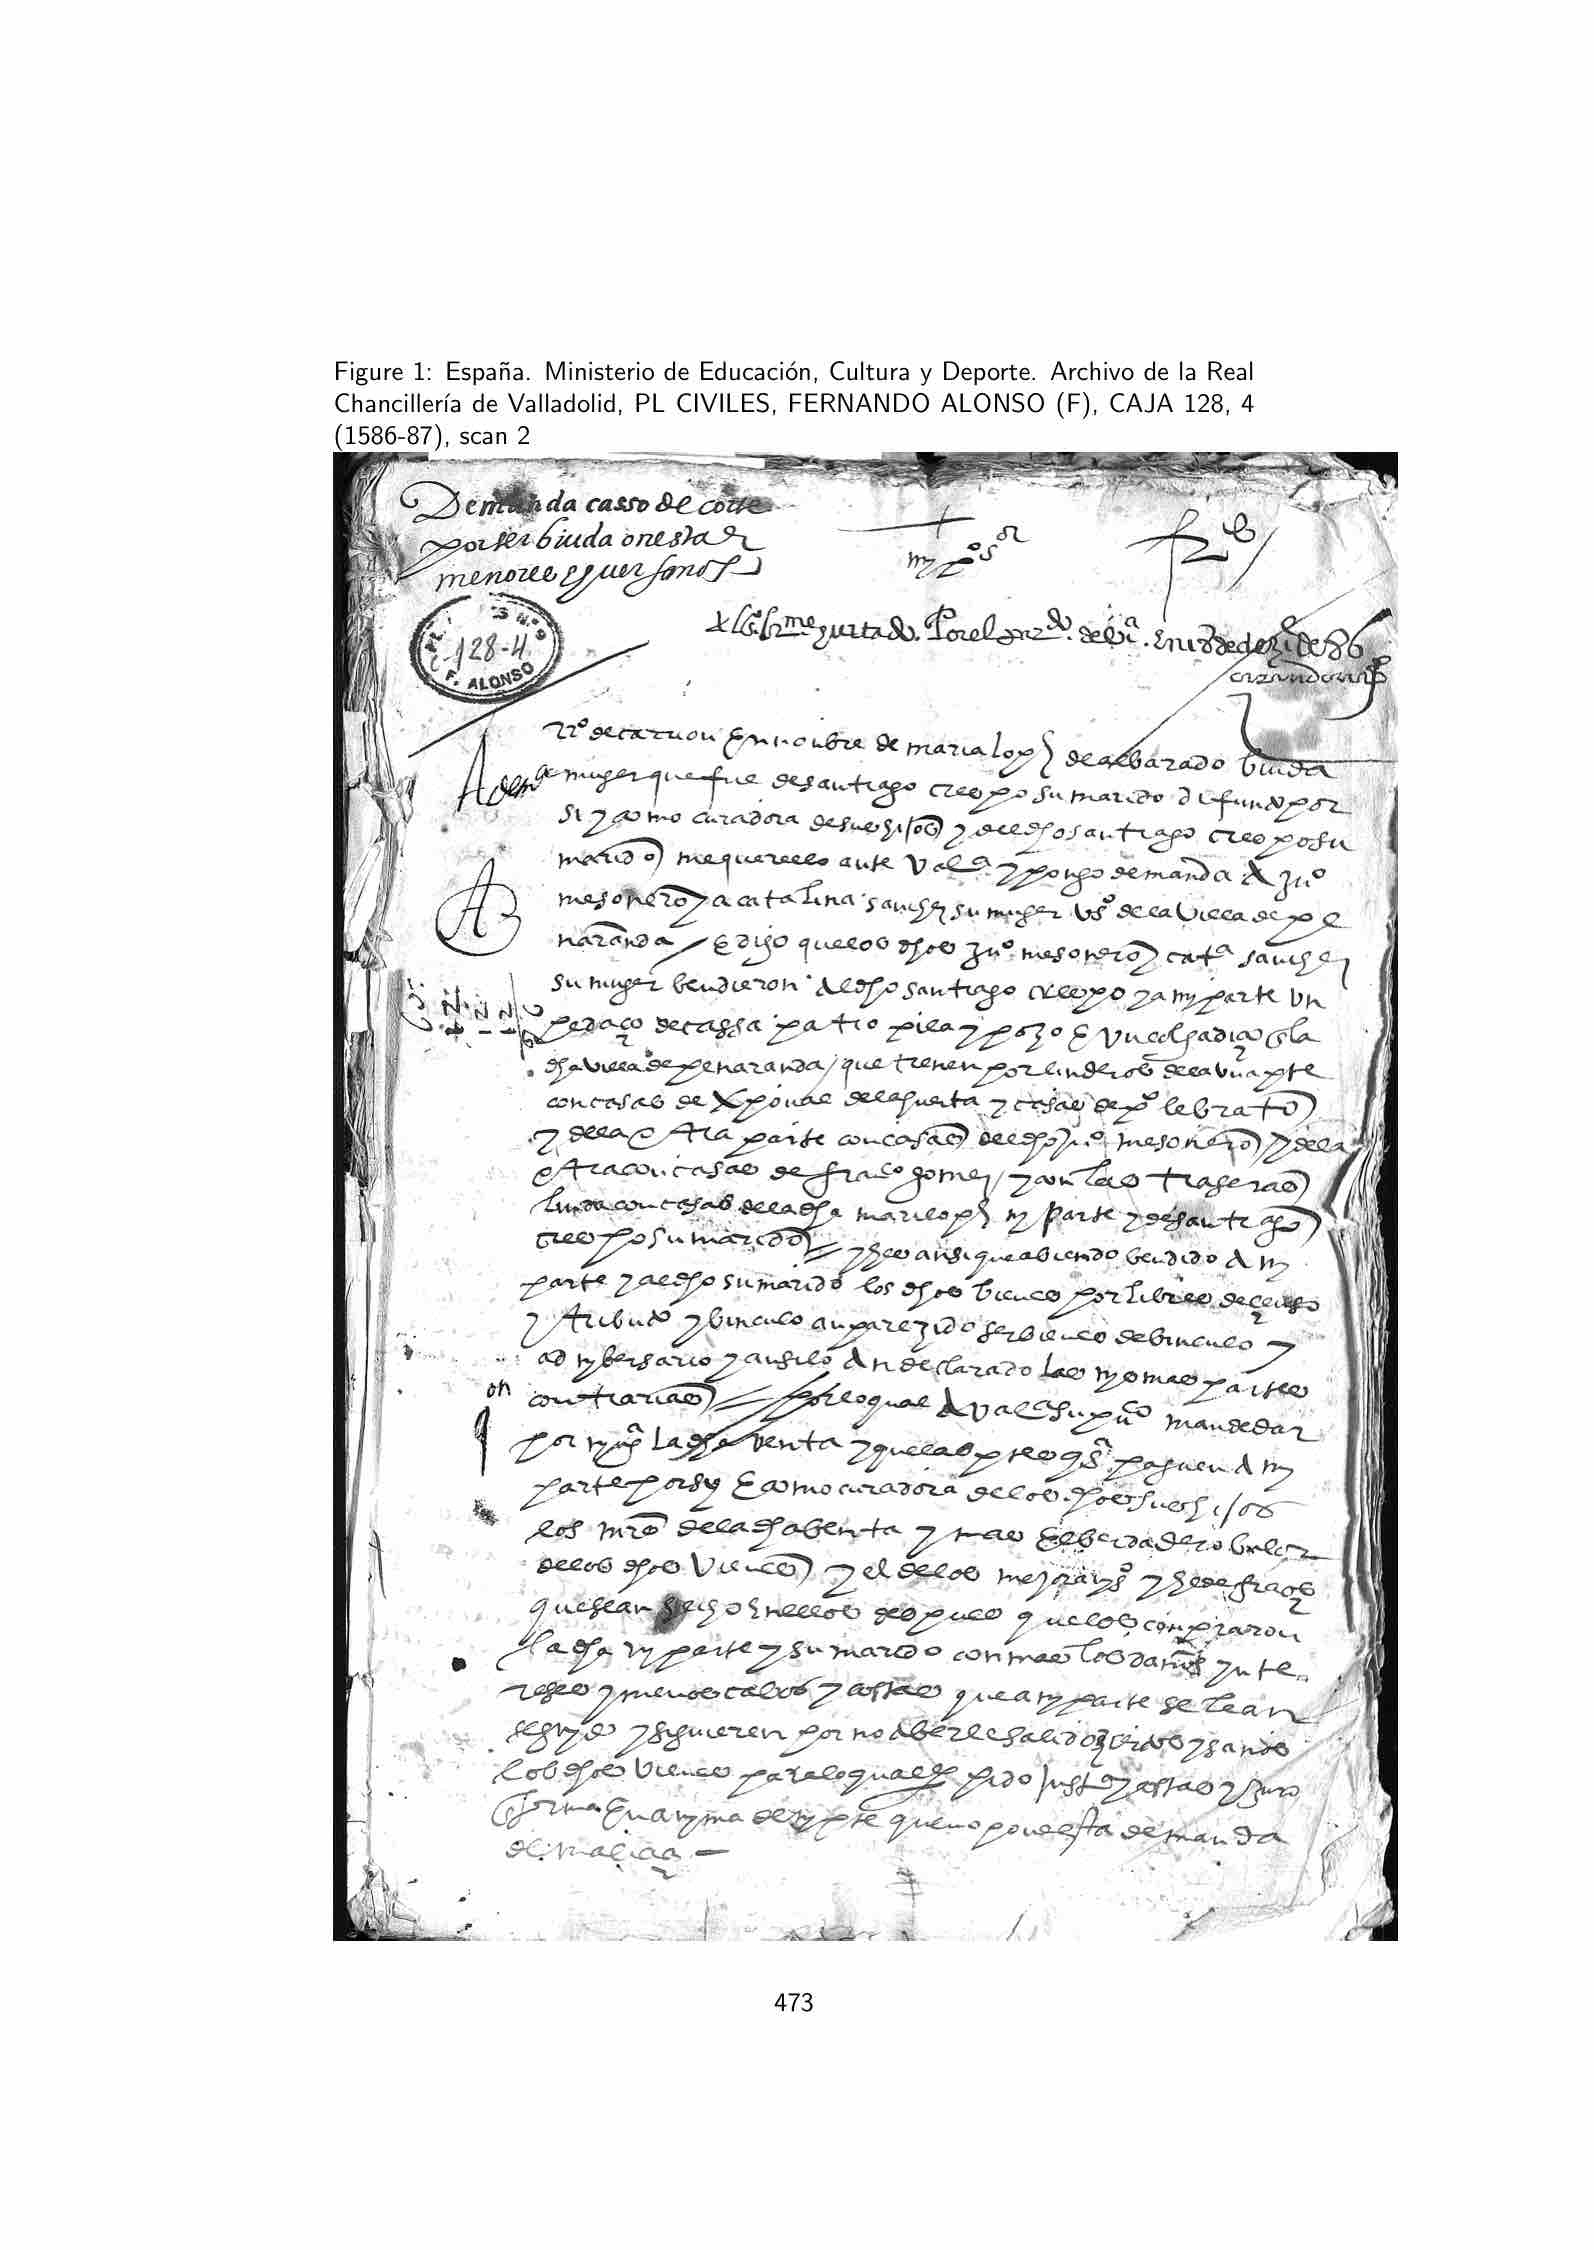 Figure 1: España. Ministerio de Educación, Cultura y Deporte. Archivo de la Real
Chancillería de Valladolid, PL CIVILES, FERNANDO ALONSO (F), CAJA 128, 4
(1586-87), scan 2
Demanda casso de corte
por ser biuda onesta e
menores guerfanos
my p.º s.or
128-4
F. ALONSO
de 86
en nombre de maria lopz de albarado biuda
muger que fue de santiago crespo su marido difunto por
si y como curadora de sus hijos y del dho santiago crespo su
marido me querello ante Val.ª y pongo demanda A Ju.º
mesonero y a catalina sanchez su muger vs.º de la villa de pe
naranda / E digo que los dhos Ju.º mesonero y cat.ª sanchez
su muger bendieron Al dho santiago crespo y a my parte un
pedaço de cassa patio pila y pozo E un colgadiço en la
dha villa de penaranda / que tienen por linderos de la una pte
con casas de Xpoual de la huerta y casas de p.º lebrato
y de la otra parte con casas del dho Ju.º mesonero y de la
otra con casas de fran.co gomez / y con las traseras
linda con casas de la dha mari lopz my parte y de santiago
crespo su marido y es ansi que abiendo bendido A my
parte y al dho su marido los dhos bienes por libres de censo
y tributo y binculo an parezido ser bienes de binculo y
adnybersario y ansi lo An declarado las mysmas partes
contrarias por lo qual A Val.ª sup.co mande dar
por la dha benta y que las ptes paguen A my
parte por sy E como curadora de los dhos sus hijos
los mrs de la dha benta y mas El berdadero balor
de los dhos bienes y el de los mejoramy.os y hedefiçios
que sean hecho En ellos despues que los compraron
la dha my parte y su marido con mas los daños ynte
reses y menoscabos y costas que a my parte se le an
segnydo y siguieren por no aberle salido çiertos y sanos
los dhos bienes para lo qual pido just.ª y costas y Juro
En forma En anyma de my pte que no pone esta demanda
de maliçia —
473